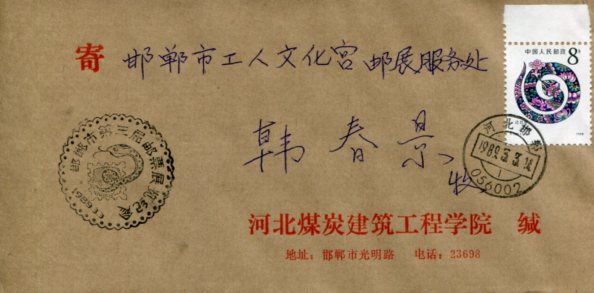 中国人民邮政
8分
寄 邯郸市工人文化宫邮展服务处
韩春景 收
河北邯郸
1989.3.3.14
056002
邯郸市第三届邮票展览纪念
1989.3.3
河北煤炭建筑工程学院 缄
地址：邯郸市光明路 电话：23698